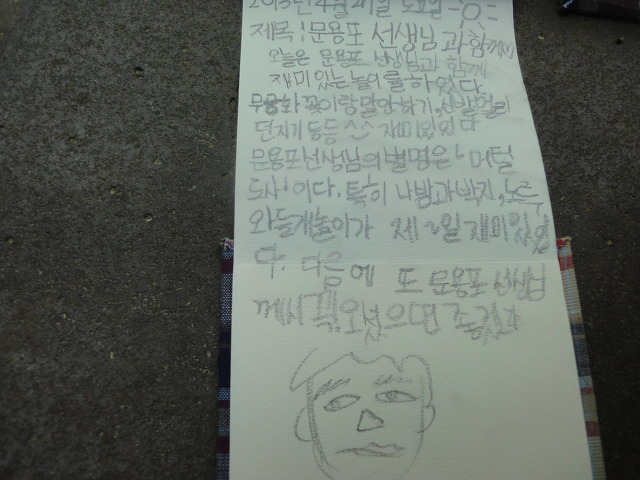 2013년 4월 21일 일요일
제목 : 문용포 선생님과 함께
오늘은 문용포 선생님과 함께
재미있는 놀이를 하였다.
무궁화 꽃이랑 말안하기, 신발멀리
던지기 등등 ^^ 재미있었다
문용포선생님의 별명은 '머털
도사' 이다. 특히 나방과박쥐,
와들게놀이가 제일 재미있었
다. 다음에 또 문용포 선생님
께서 꼭 오셨으면 좋겠다